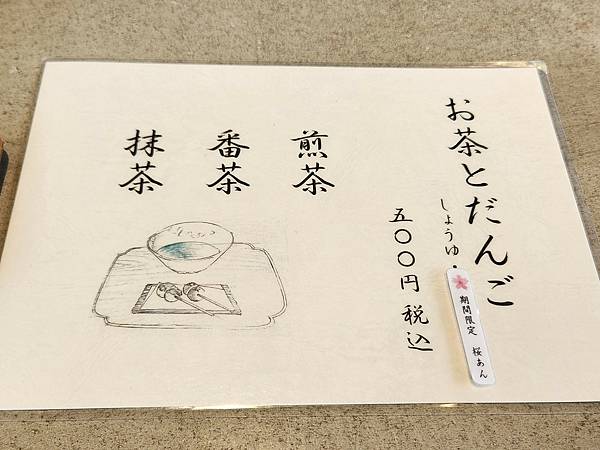 お茶とだんご
しょうゆ・
期間限定 桜あん
五〇〇円 税込
煎茶
番茶
抹茶